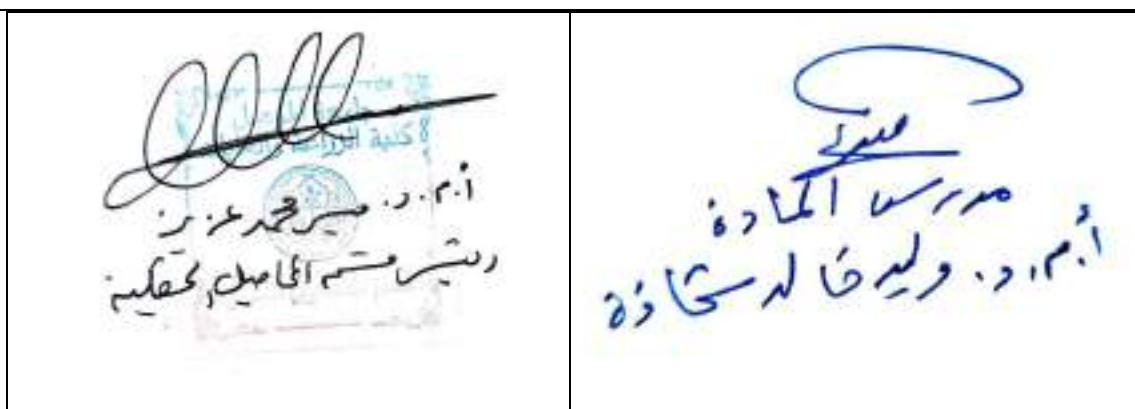 مدرس المادة
أ.م.د. وليد خالد شحاذة
كلية الزراعة
أ.م.د. محمد عزيز
رئيس قسم المحاصيل الحقلية